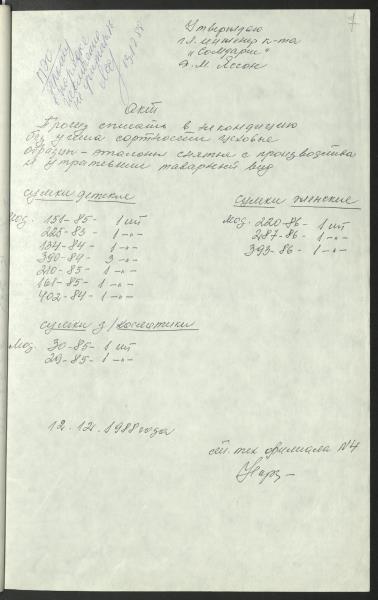 7
Утверждаю
гл. инженер к-та
"Сомдарис"
Ф. М. Яссон
13.12.88
Акт
Просим списать в некондицию
без учёта сортности цеховые
образцы-эталоны снятые с производства
и утратившие товарный вид
сумки детские
мод. 151-85- 1 шт
225-83 - 1 -"-
134-84 - 1 -"-
390-84 - 3 -"-
210-85 - 1 -"-
161-85 - 1 -"-
402-84 - 1 -"-
сумки женские
мод. 220-86 - 1 шт
287-86 - 1 -"-
393-86 - 1 -"-
сумки д/косметики
мод. 30-85- 1 шт
29-85- 1 -"-
12.12.1988 года
ст. тех филиала N4